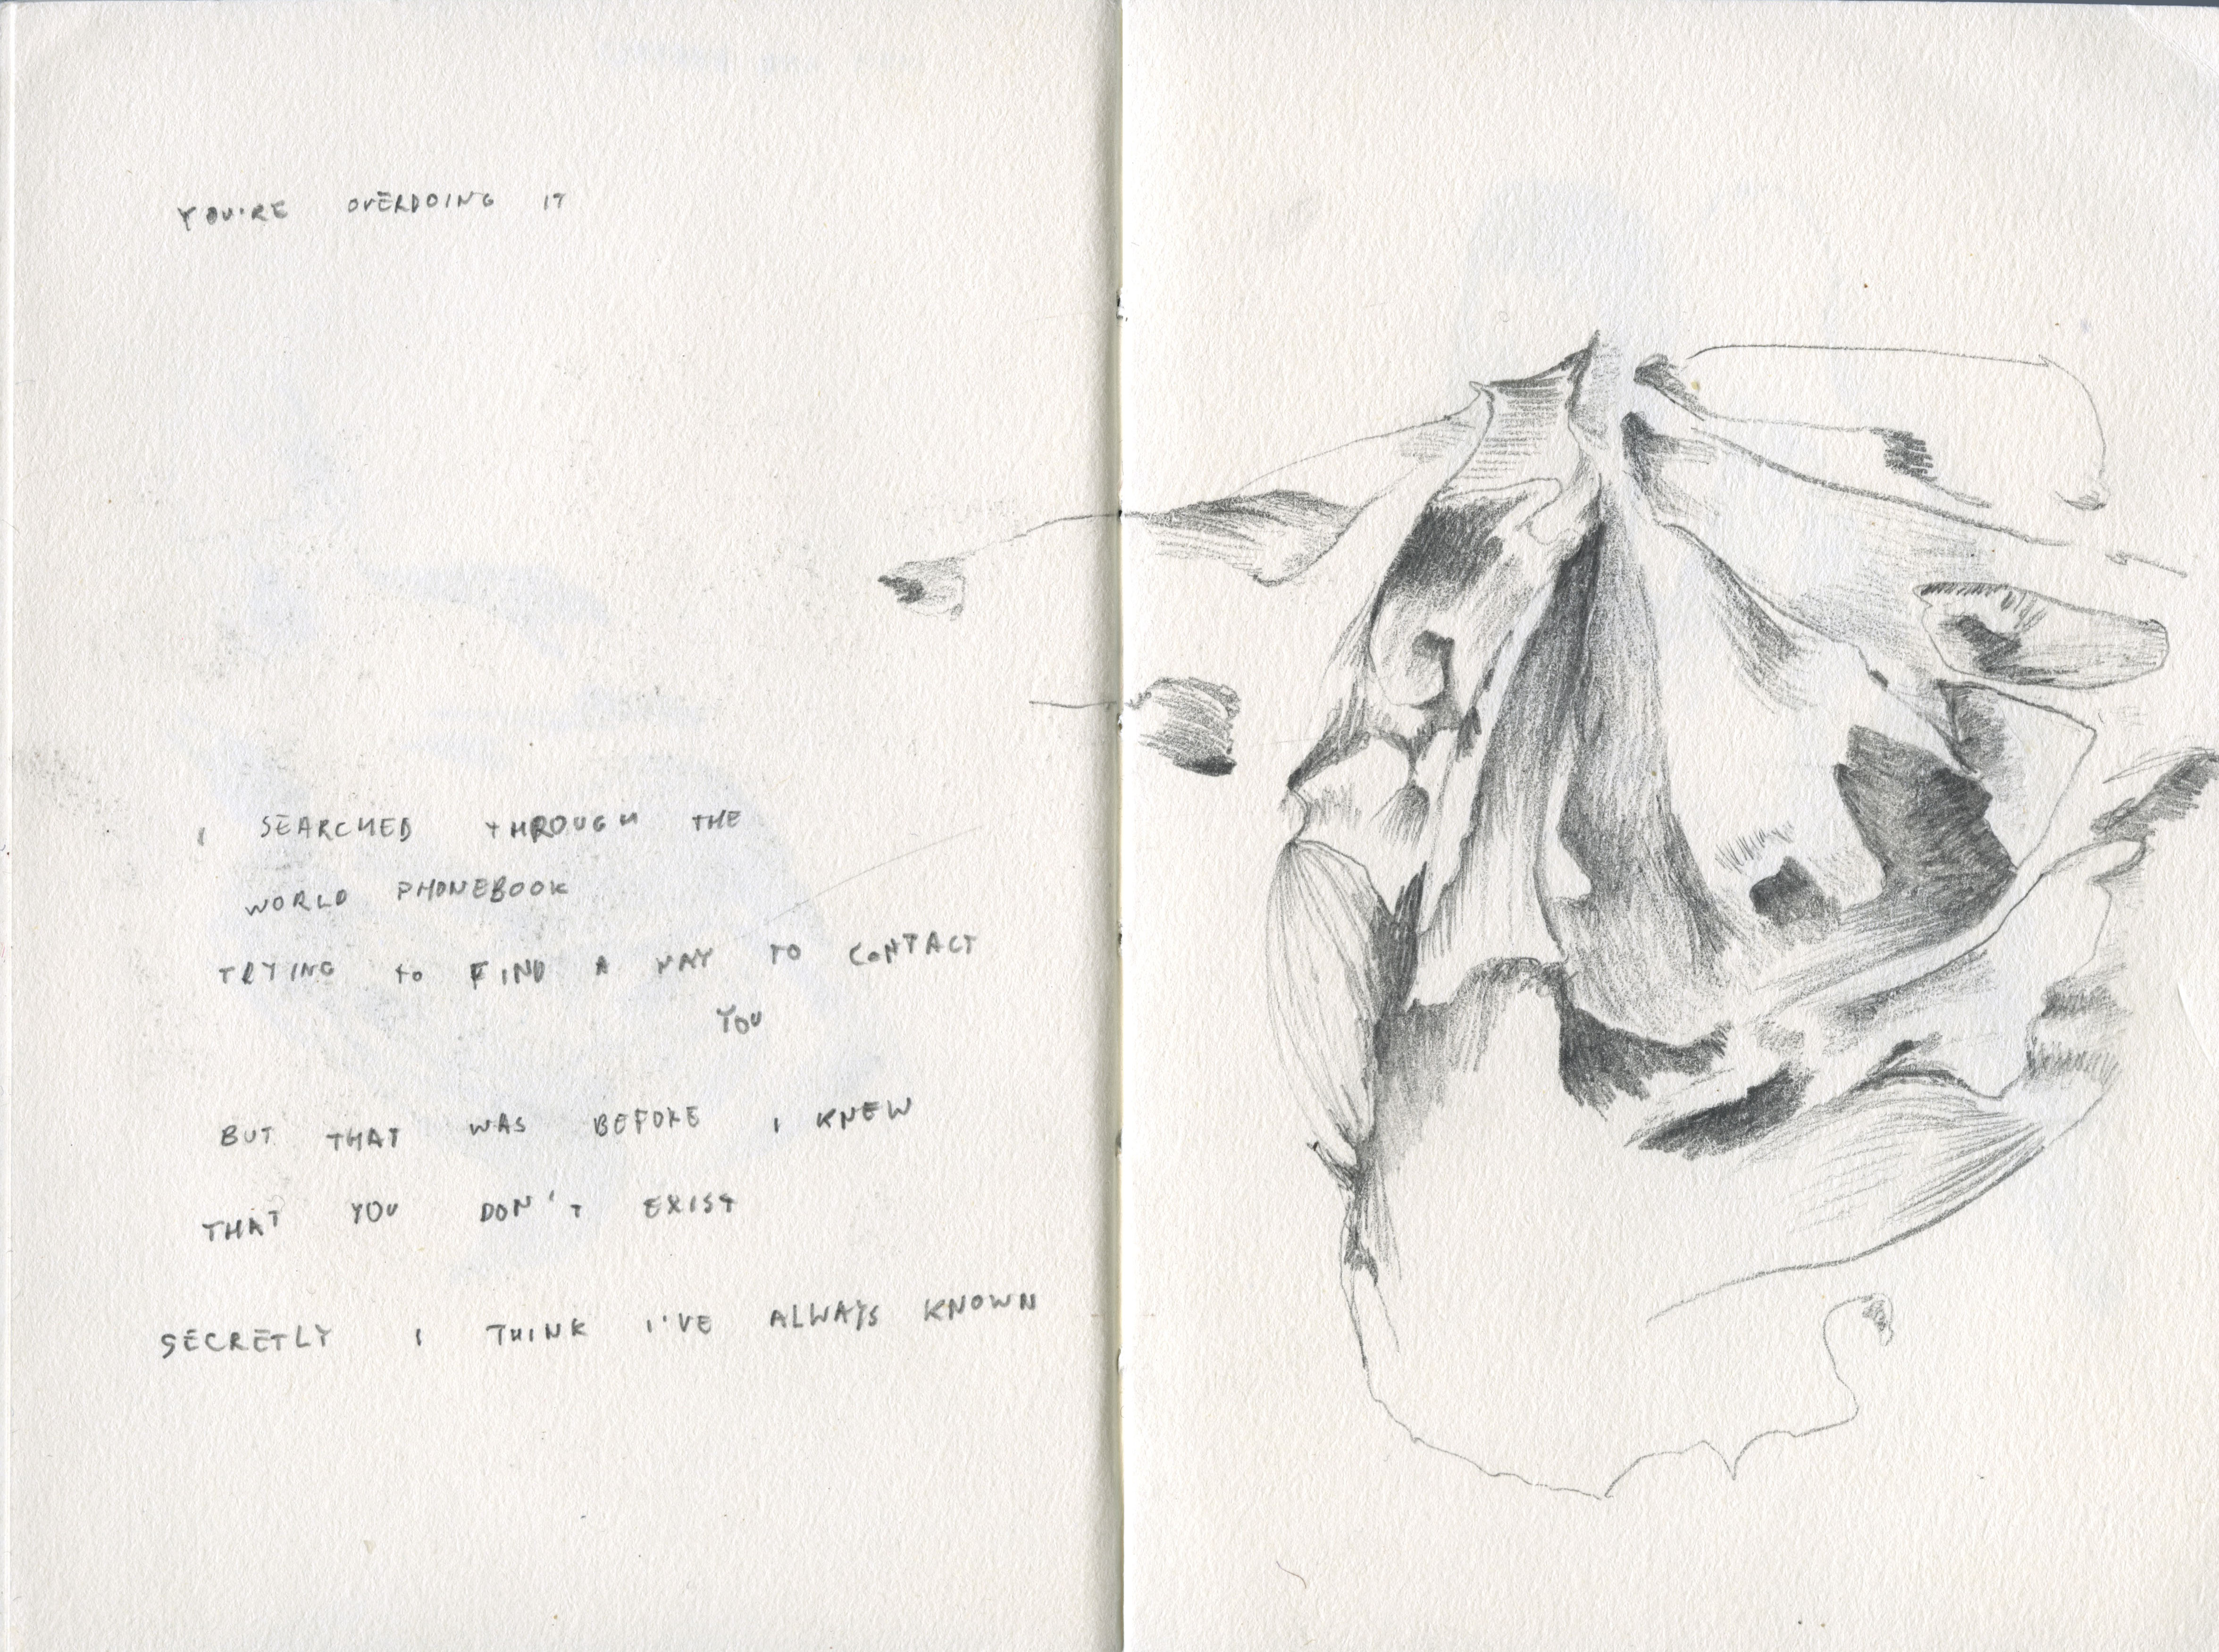 YOU'RE OVERDOING IT
I SEARCHED THROUGH THE
WORLD PHONEBOOK
TRYING to FIND A WAY TO CONTACT
YOU
BUT THAT WAS BEFORE I KNEW
THAT YOU DON'T EXIST
SECRETLY I THINK I'VE ALWAYS KNOWN